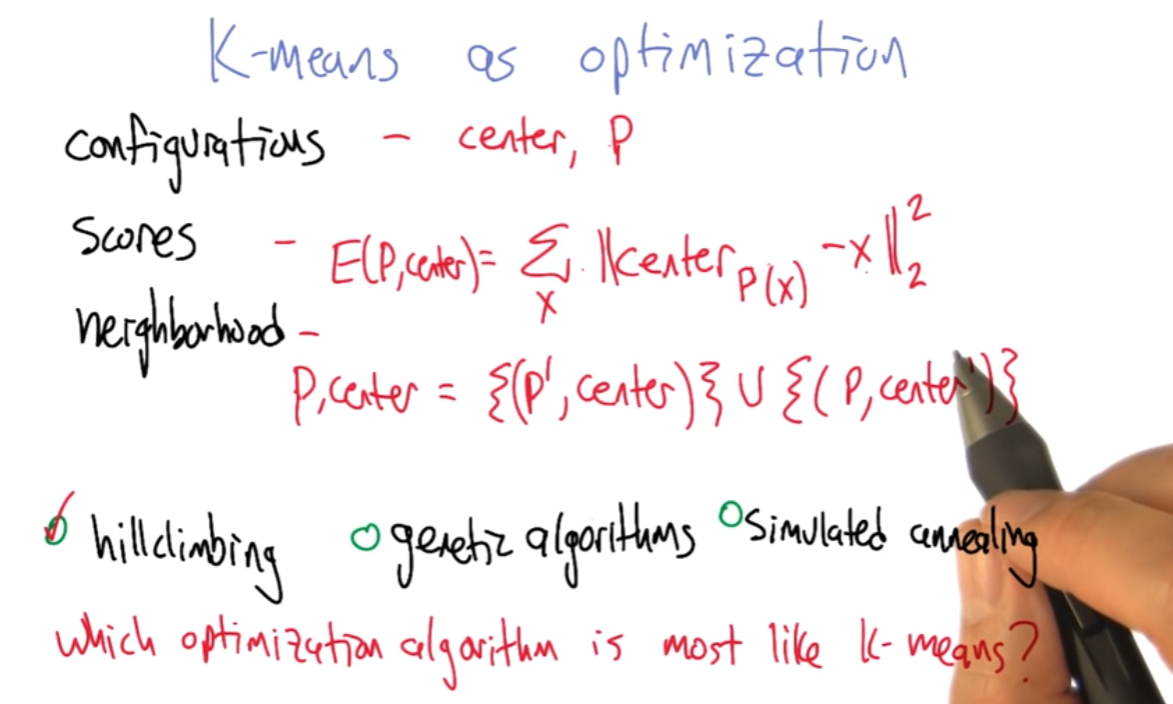 K-means as optimization
configurations - center, P
scores - E(P,center)= Σ_x ||center_P(x) -x||₂²
neighborhood -
P,center = {(P', center)} ∪ {(P, center')}
hillclimbing genetic algorithms simulated annealing
which optimization algorithm is most like k-means?